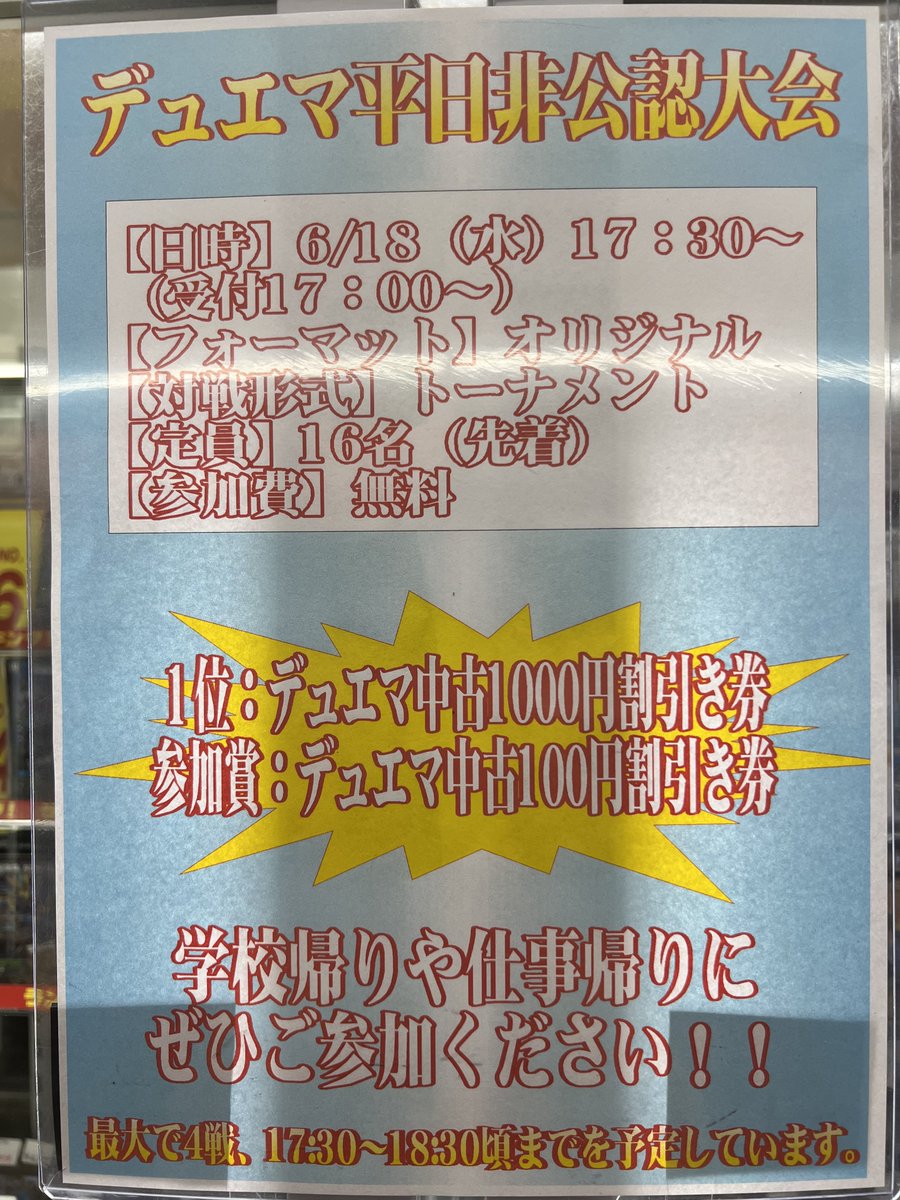 デュエマ平日非公認大会
【日時】6/18（水）17：30～
（受付17：00～）
【フォーマット】オリジナル
【対戦形式】トーナメント
【定員】16名（先着）
【参加費】無料
1位：デュエマ中古1000円割引き券
参加賞：デュエマ中古100円割引き券
学校帰りや仕事帰りに
ぜひご参加ください！！
最大で4戦、17:30～18:30頃までを予定しています。